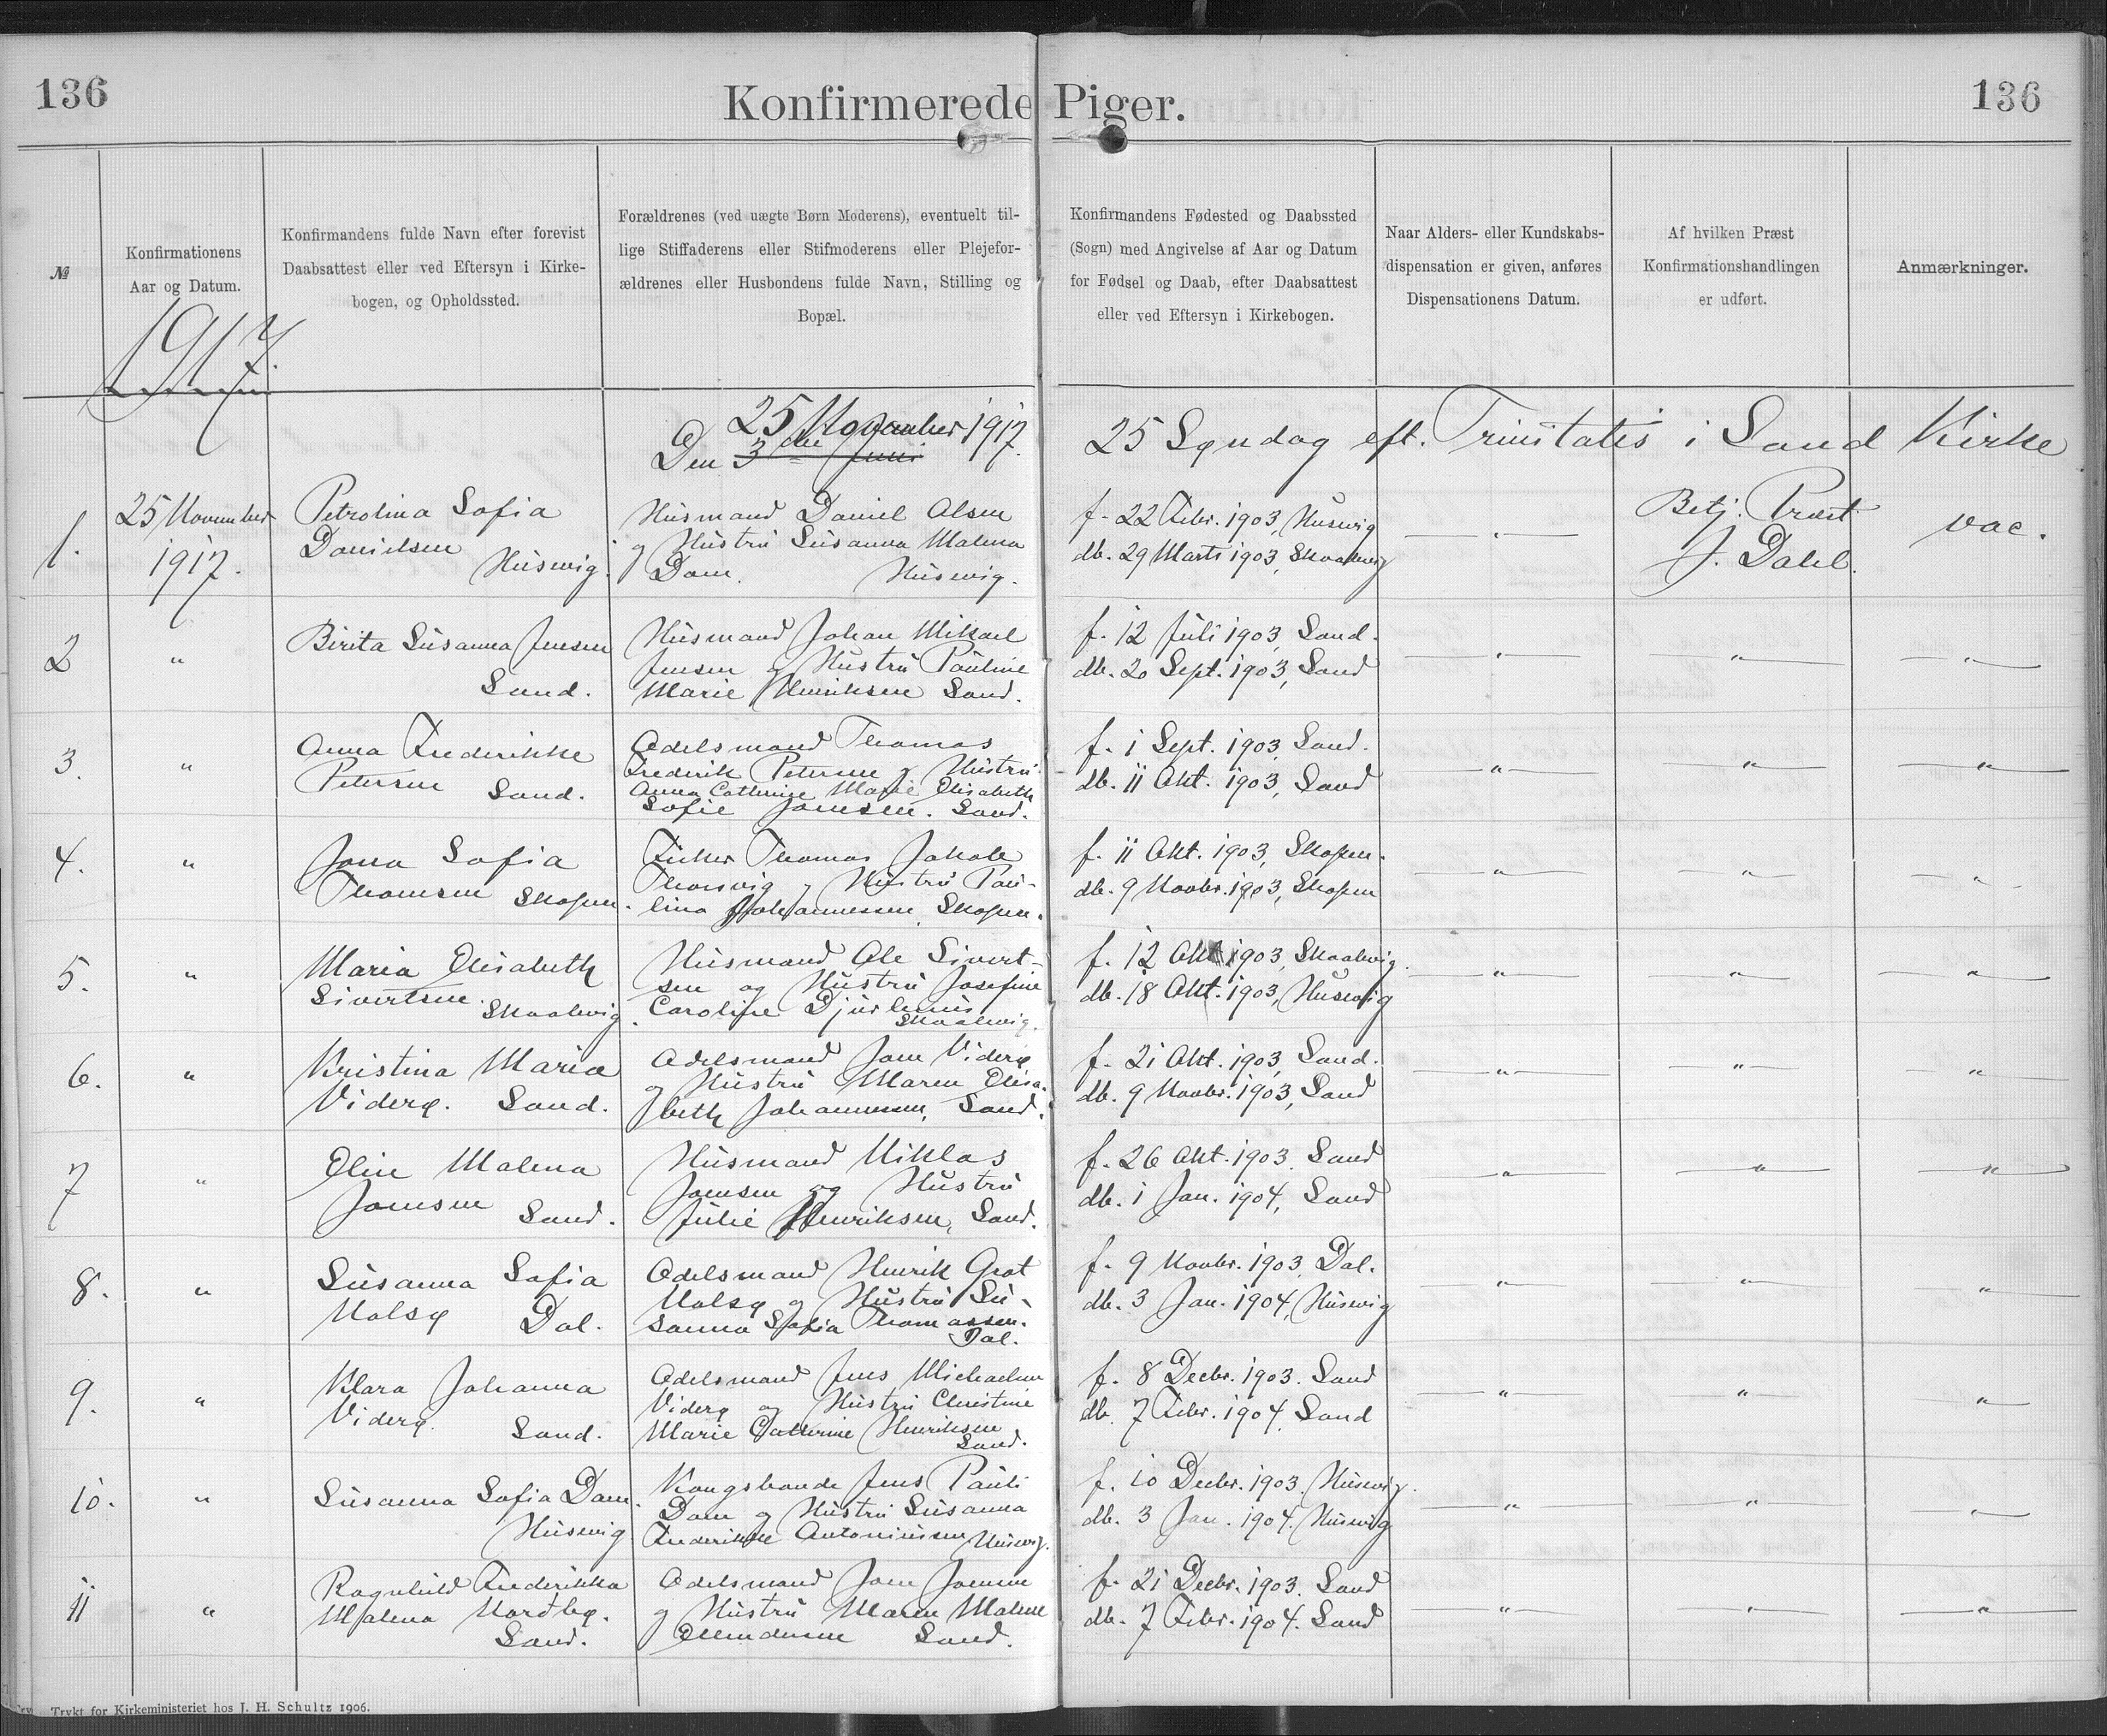 136
Konfirmerede Piger.
136
№
Konfirmationens
Aar og Datum.
Konfirmandens fulde Navn efter forevist
Daabsattest eller ved Eftersyn i Kirke-
bogen, og Opholdssted.
Forældrenes (ved uægte Børn Moderens), eventuelt til-
lige Stiffaderens eller Stifmoderens eller Plejefor-
ældrenes eller Husbondens fulde Navn, Stilling og
Bopæl.
Konfirmandens Fødested og Daabssted
(Sogn) med Angivelse af Aar og Datum
for Fødsel og Daab, efter Daabsattest
eller ved Eftersyn i Kirkebogen.
Naar Alders- eller Kundskabs-
dispensation er given, anføres
Dispensationens Datum.
Af hvilken Præst
Konfirmationshandlingen
er udført.
Anmærkninger.
1917.
25 November 1917.
Den 3die Juni
25 Søndag eft. Trinitatis i Sand Kirke
1.
25 November
1917.
Petrolina Sofia
Danielsen
Húsevig.
Húsmand Daniel Olsen
og Hústrú Súsanna Malena
Dam. Húsevig.
f. 22 Febr. 1903, Husevig
db. 29 Marts 1903, Skaalevig
— " —
Betj. Præst
J. Dahl.
vac.
2
"
Birita Súsanna Jensen
Sand.
Húsmand Johan Mikael
Jensen og Hústrú Paúline
Marie Henriksen Sand.
f. 12 Júli 1903, Sand.
db. 20 Sept. 1903, Sand
— " —
— " —
— " —
3.
"
Anna Frederikke
Petersen Sand.
Odelsmand Thomas
Frederik Petersen og Hústrú
Anna Cathrine Marie Elisabeth
Sofie Joensen. Sand.
f. 1 Sept. 1903, Sand.
db. 11 Okt. 1903, Sand
— " —
— " —
— " —
4.
"
Jona Sofia
Thomsen Skopun.
Fisker Thomas Jakob
Thorsvig og Hústrú Paú-
lina Johannessen, Skopun.
f. 11 Okt. 1903, Skopun.
db. 9 Novbr. 1903, Skopun
— " —
— " —
— " —
5.
"
Maria Elisabeth
Sivertsen.
Skaalevig.
Húsmand Ole Sivert-
sen og Hústrú Josefine
Caroline Djúrhuús
Skaalevig.
f. 12 Okt 1903, Skaalevig.
db. 18 Okt. 1903, Husevig
— " —
— " —
— " —
6.
"
Kristina Maria
Viderø. Sand.
Odelsmand Joen Viderø
og Hústrú Maren Elisa-
beth Johannessen, Sand.
f. 21 Okt. 1903, Sand.
db. 9 Novbr. 1903, Sand
— " —
— " —
— " —
7
"
Elin Malena
Joensen Sand.
Húsmand Niklas
Joensen og Hústrú
Júlie Henriksen, Sand.
f. 26 Okt. 1903. Sand
db. 1 Jan. 1904, Sand
— " —
— " —
— " —
8.
"
Súsanna Sofia
Nolsø Dal.
Odelsmand Henrik Grot
Nolsø og Hústrú Sú-
sanna Sofia Thomassen.
Dal.
f. 9 Novbr. 1903, Dal.
db. 3 Jan. 1904, Húsevig
— " —
— " —
— " —
9.
"
Klara Johanna
Viderø. Sand.
Odelsmand Jens Michaelsen
Viderø og Hústrú Christine
Marie Cathrine Henriksen
Sand.
f. 8 Decbr. 1903. Sand
db. 7 Febr. 1904. Sand
— " —
— " —
— " —
10.
"
Súsanna Sofia Dam.
Húsevig
Kongsbonde Jens Paúli
Dam og Hústrú Súsanna
Frederikke Antoniúsen Húsevig.
f. 10 Decbr. 1903. Húsevig.
db. 3 Jan. 1904. Húsevig
— " —
— " —
— " —
11
"
Ragnhild Frederikka
Malena Nordbø.
Sand.
Odelsmand Joen Joensen
og Hústrú Maren Malene
Ellendersen Sand.
f. 21 Decbr. 1903. Sand
db. 7 Febr. 1904. Sand
— " —
— " —
— " —
Trykt for Kirkeministeriet hos J. H. Schultz 1906.